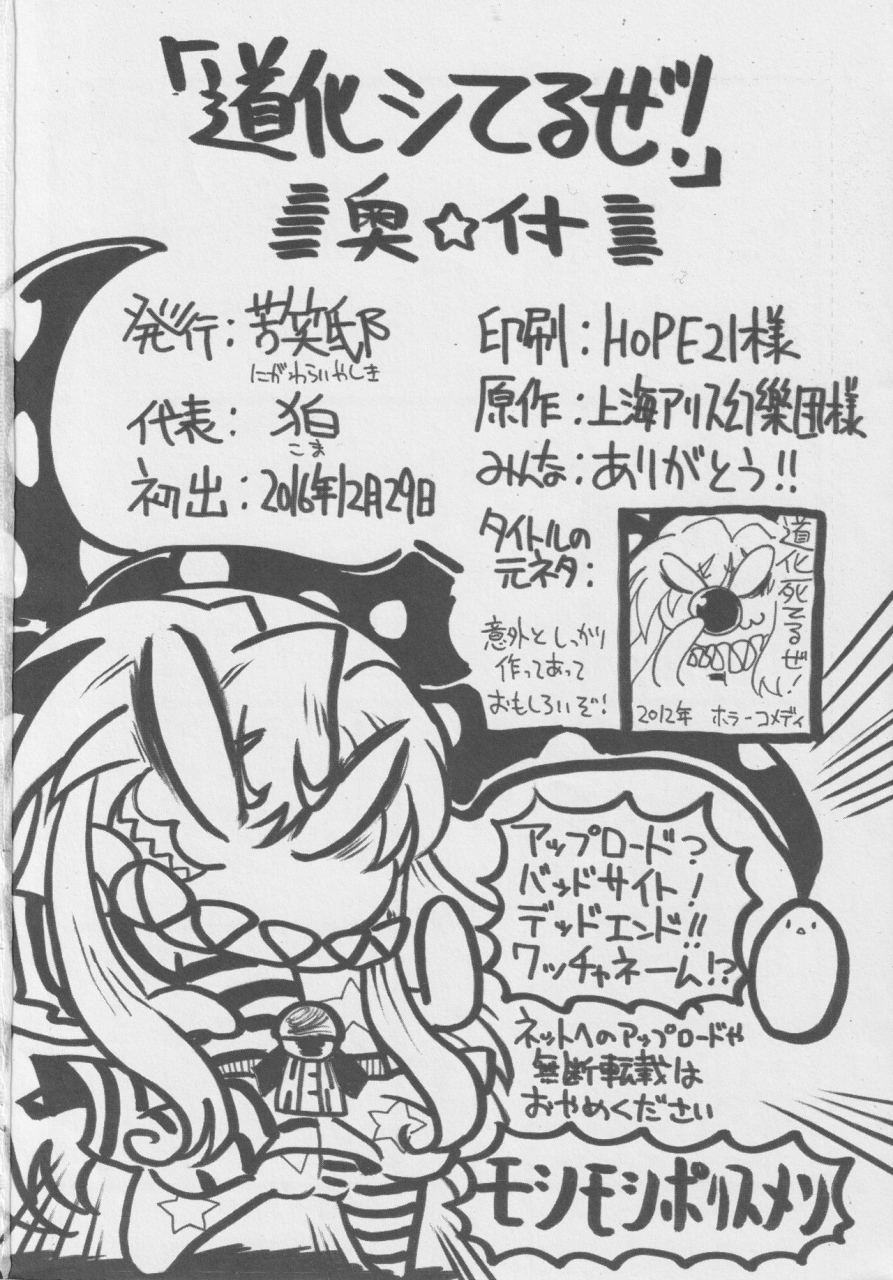 「道化シてるぜ!」
奥☆付
発行:苦笑邸
にがわらいやしき
代表:狛
こま
初出:2016年12月29日
印刷:HOPE21様
原作:上海アリス幻樂団様
みんな:ありがとう!!
タイトルの
元ネタ:
意外としっかり
作ってあって
おもしろいぞ!
道化死てるぜ!
2012年 ホラーコメディ
アップロード?
バッドサイト!
デッドエンド!!
ワッチャネーム!?
ネットへのアップロードや
無断転載は
おやめください
モシモシポリスメン